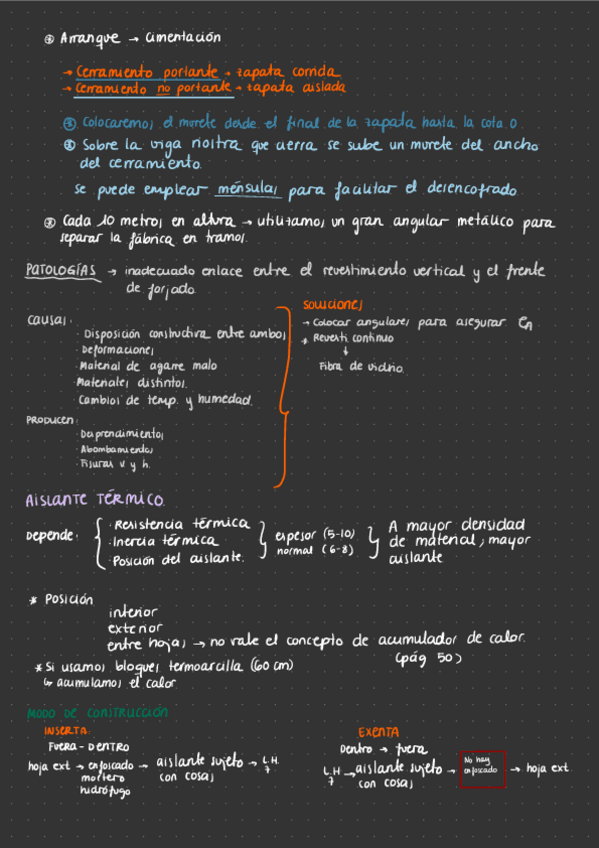 ⊛ Arranque → Cimentación
→ Cerramiento portante → zapata corrida
→ Cerramiento no portante → zapata aislada
⊛ Colocaremos el murete desde el final de la zapata hasta la cota 0
⊛ Sobre la viga riostra que cierra se sube un murete del ancho
del cerramiento.
se puede emplear ménsulas para facilitar el desencofrado
⊛ Cada 10 metros en altura → utilitamos un gran angular metálico para
separar la fábrica en tramos.
PATOLOGÍAS → inadecuado enlace entre el revestimiento vertical y el frente
de forjado.
SOLUCIONES
→ Colocar angulares para asegurar en
* Revesti continuo
↓
Fibra de vidrio.
CAUSAS:
· Disposición constructiva entre ambos
· Deformaciones
· Material de agarre malo
· Materiales distintos.
· Cambios de temp. y humedad.
PRODUCEN:
· Desprendimientos
· Abombamientos
· Fisuras v y h.
AISLANTE TÉRMICO.
Depende:
· Resistencia térmica
· Inercia térmica
· Posición del aislante.
espesor (5-10)
normal (6-8)
A mayor densidad
de material, mayor
aislante
* Posición
interior
exterior
entre hojas → no vale el concepto de acumulador de calor.
(pág 50)
* Si usamos bloques termoarcilla (60 cm)
↳ acumulamos el calor
MODO DE CONSTRUCCIÓN
INSERTA:
FUERA - DENTRO
hoja ext → enfoscado → aislante sujeto → L.H.
mortero con cosas 7
hidrófugo
EXENTA
Dentro → fuera
L.H → aislante sujeto → No hay enfoscado → hoja ext.
7 con cosas